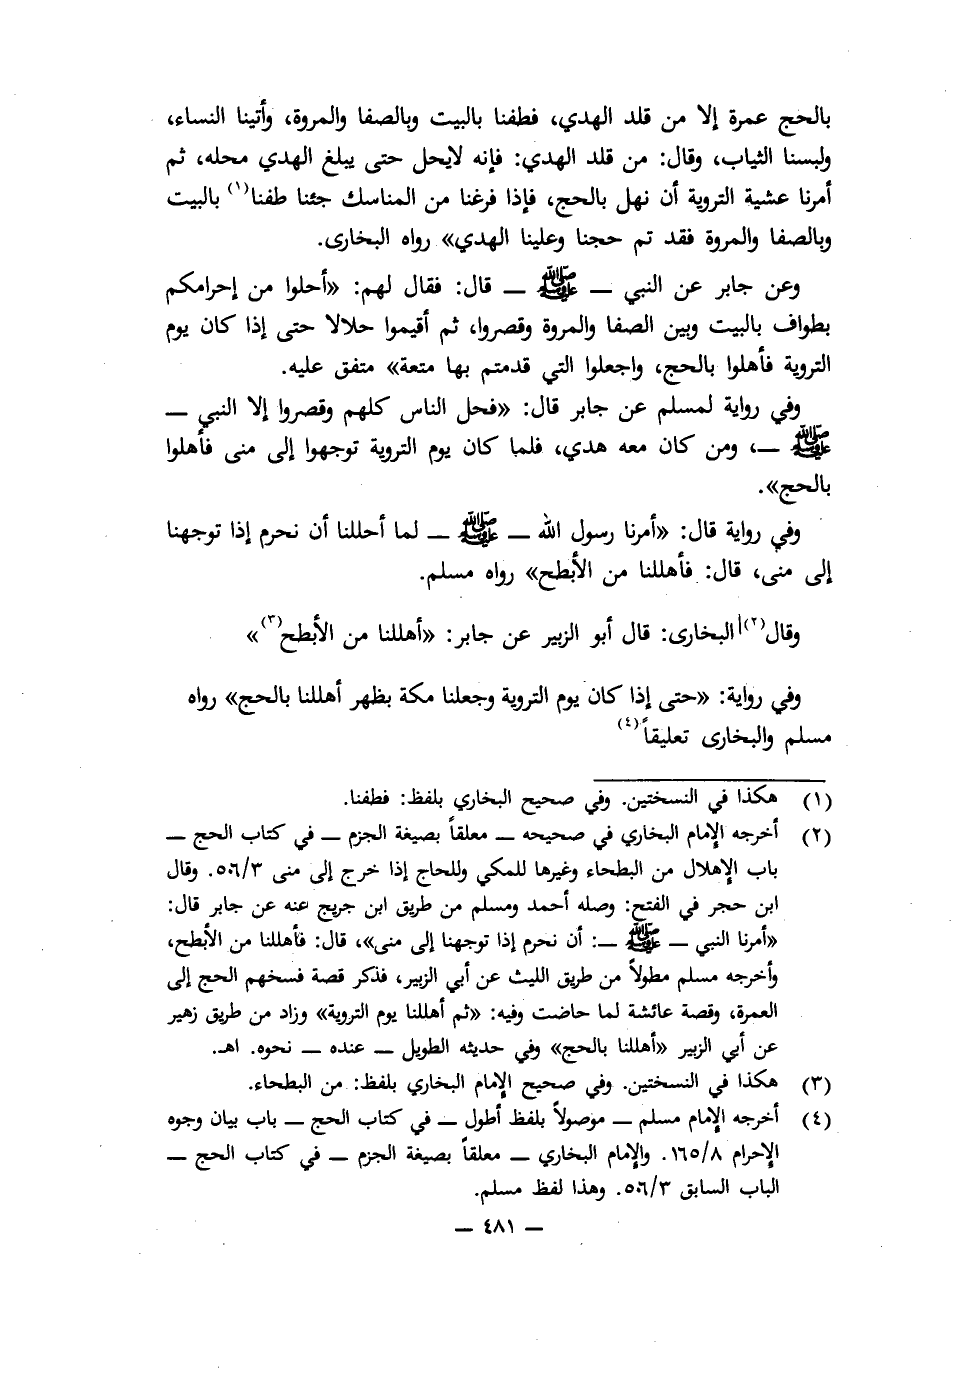 بالحج عمرة إلا من قلد الهدي، فطفنا بالبيت وبالصفا والمروة، وأتينا النساء،
ولبسنا الثياب، وقال: من قلد الهدي: فإنه لايحل حتى يبلغ الهدي محله، ثم
أمرنا عشية التروية أن نهل بالحج، فإذا فرغنا من المناسك جئنا طفنا(١) بالبيت
وبالصفا والمروة فقد تم حجنا وعلينا الهدي» رواه البخارى.
وعن جابر عن النبي — ﷺ — قال: فقال لهم: «أحلوا من إحرامكم
بطواف بالبيت وبين الصفا والمروة وقصروا، ثم أقيموا حلالا حتى إذا كان يوم
التروية فأهلوا بالحج، واجعلوا التي قدمتم بها متعة» متفق عليه.
وفي رواية لمسلم عن جابر قال: «فحل الناس كلهم وقصروا إلا النبي —
ﷺ —، ومن كان معه هدي، فلما كان يوم التروية توجهوا إلى منى فأهلوا
بالحج».
وفي رواية قال: «أمرنا رسول الله — ﷺ — لما أحللنا أن نحرم إذا توجهنا
إلى منى، قال: فأهللنا من الأبطح» رواه مسلم.
وقال(٢) البخارى: قال أبو الزبير عن جابر: «أهللنا من الأبطح(٣)»
وفي رواية: «حتى إذا كان يوم التروية وجعلنا مكة بظهر أهللنا بالحج» رواه
مسلم والبخارى تعليقاً(٤)
(١) هكذا في النسختين. وفي صحيح البخاري بلفظ: فطفنا.
(٢) أخرجه الإمام البخاري في صحيحه — معلقاً بصيغة الجزم — في كتاب الحج —
باب الإهلال من البطحاء وغيرها للمكي وللحاج إذا خرج إلى منى ٥٠٦/٣. وقال
ابن حجر في الفتح: وصله أحمد ومسلم من طريق ابن جريج عنه عن جابر قال:
«أمرنا النبي — ﷺ —: أن نحرم إذا توجهنا إلى منى»، قال: فأهللنا من الأبطح،
وأخرجه مسلم مطولاً من طريق الليث عن أبي الزبير، فذكر قصة فسخهم الحج إلى
العمرة، وقصة عائشة لما حاضت وفيه: «ثم أهللنا يوم التروية» وزاد من طريق زهير
عن أبي الزبير «أهللنا بالحج» وفي حديثه الطويل — عنده — نحوه. اهـ.
(٣) هكذا في النسختين. وفي صحيح الإمام البخاري بلفظ: من البطحاء.
(٤) أخرجه الإمام مسلم — موصولاً بلفظ أطول — في كتاب الحج — باب بيان وجوه
الإحرام ١٦٥/٨. والإمام البخاري — معلقاً بصيغة الجزم — في كتاب الحج —
الباب السابق ٥٠٦/٣. وهذا لفظ مسلم.
— ٤٨١ —